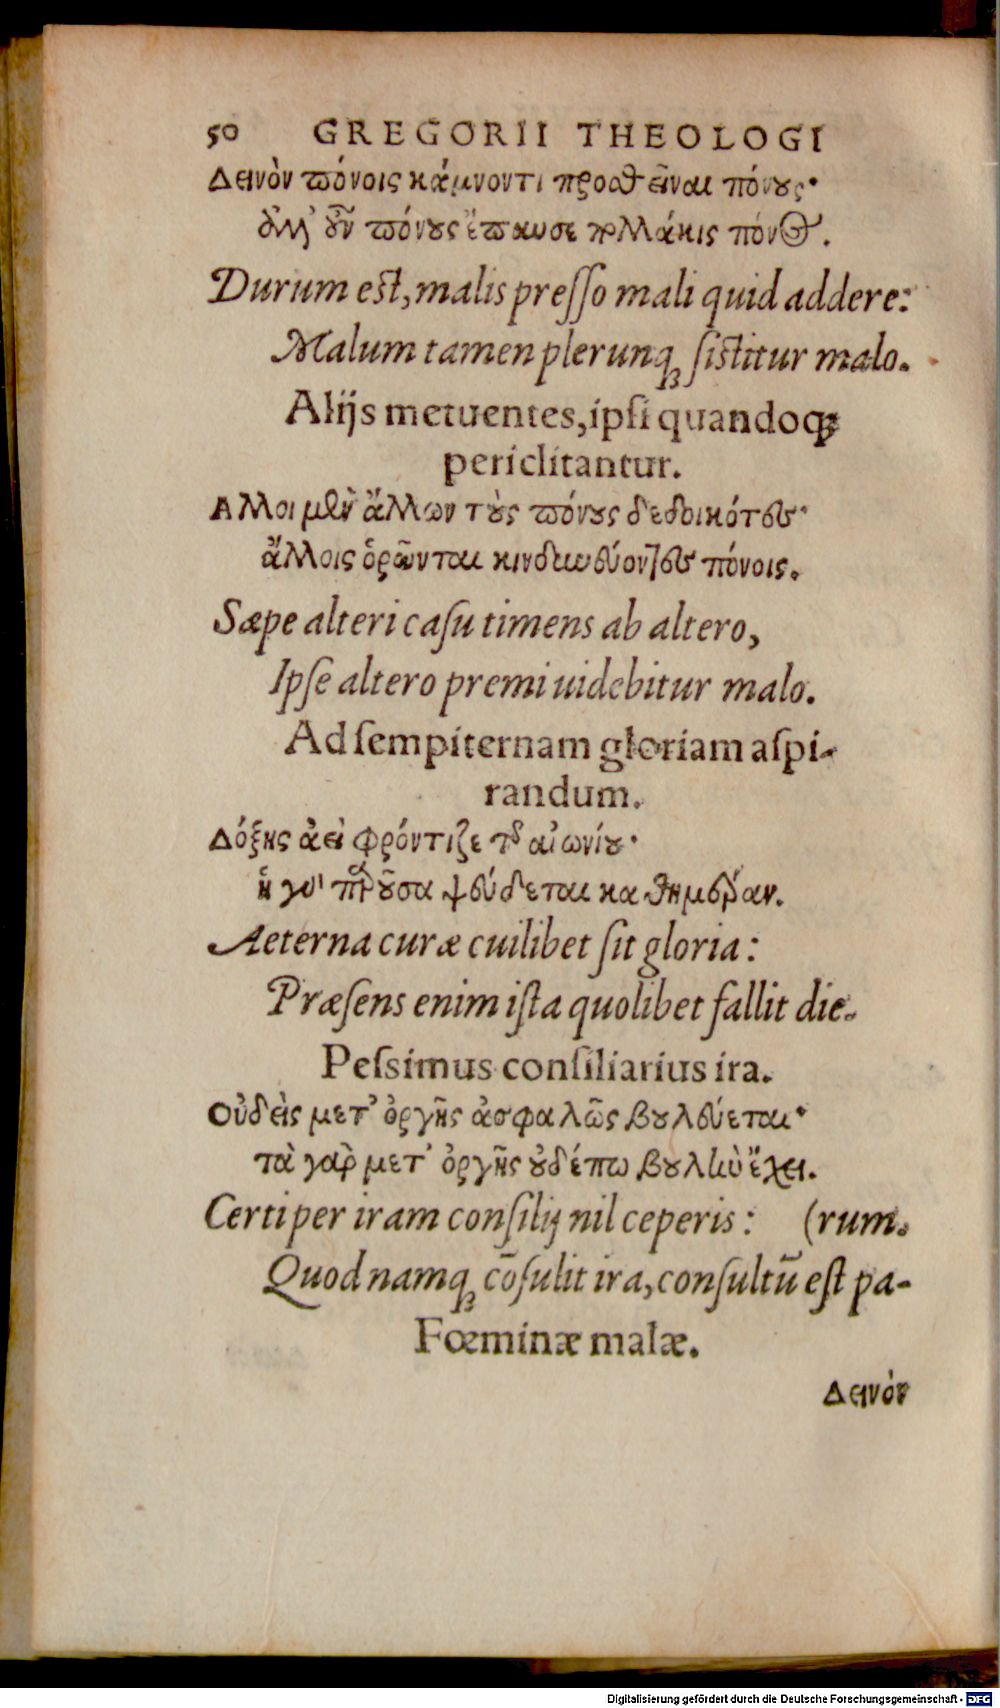 50 GREGORII THEOLOGI
Δεινὸν πόνοις κάμνοντι προσθεῖναι πόνους·
ἀλλ' οὖν πόνους ἔπαυσε πολλάκις πόνος.
Durum est, malis presso mali quid addere:
Malum tamen plerunq; sistitur malo.
Alijs metuentes, ipsi quandoq;
periclitantur.
Αλλοι μὲν ἄλλων τοὺς πόνους δεδοικότες·
ἄλλοις ὁρῶνται κινδυνεύοντες πόνοις.
Sæpe alteri casu timens ab altero,
Ipse altero premi uidebitur malo.
Ad sempiternam gloriam aspi-
randum.
Δόξης ἀεὶ φρόντιζε τῆς αἰωνίου·
ἡ γὰρ παροῦσα ψεύδεται καθημέραν.
Aeterna curæ cuilibet sit gloria:
Præsens enim ista quolibet fallit die.
Pessimus consiliarius ira.
Οὐδεὶς μετ' ὀργῆς ἀσφαλῶς βουλεύεται·
τὰ γὰρ μετ' ὀργῆς οὐδέπω βουλὴν ἔχει.
Certi per iram consilij nil ceperis: (rum.
Quod namq; cōsulit ira, consultū est pa-
Fœminæ malæ.
Δεινὸν
Digitalisierung gefördert durch die Deutsche Forschungsgemeinschaft - DFG